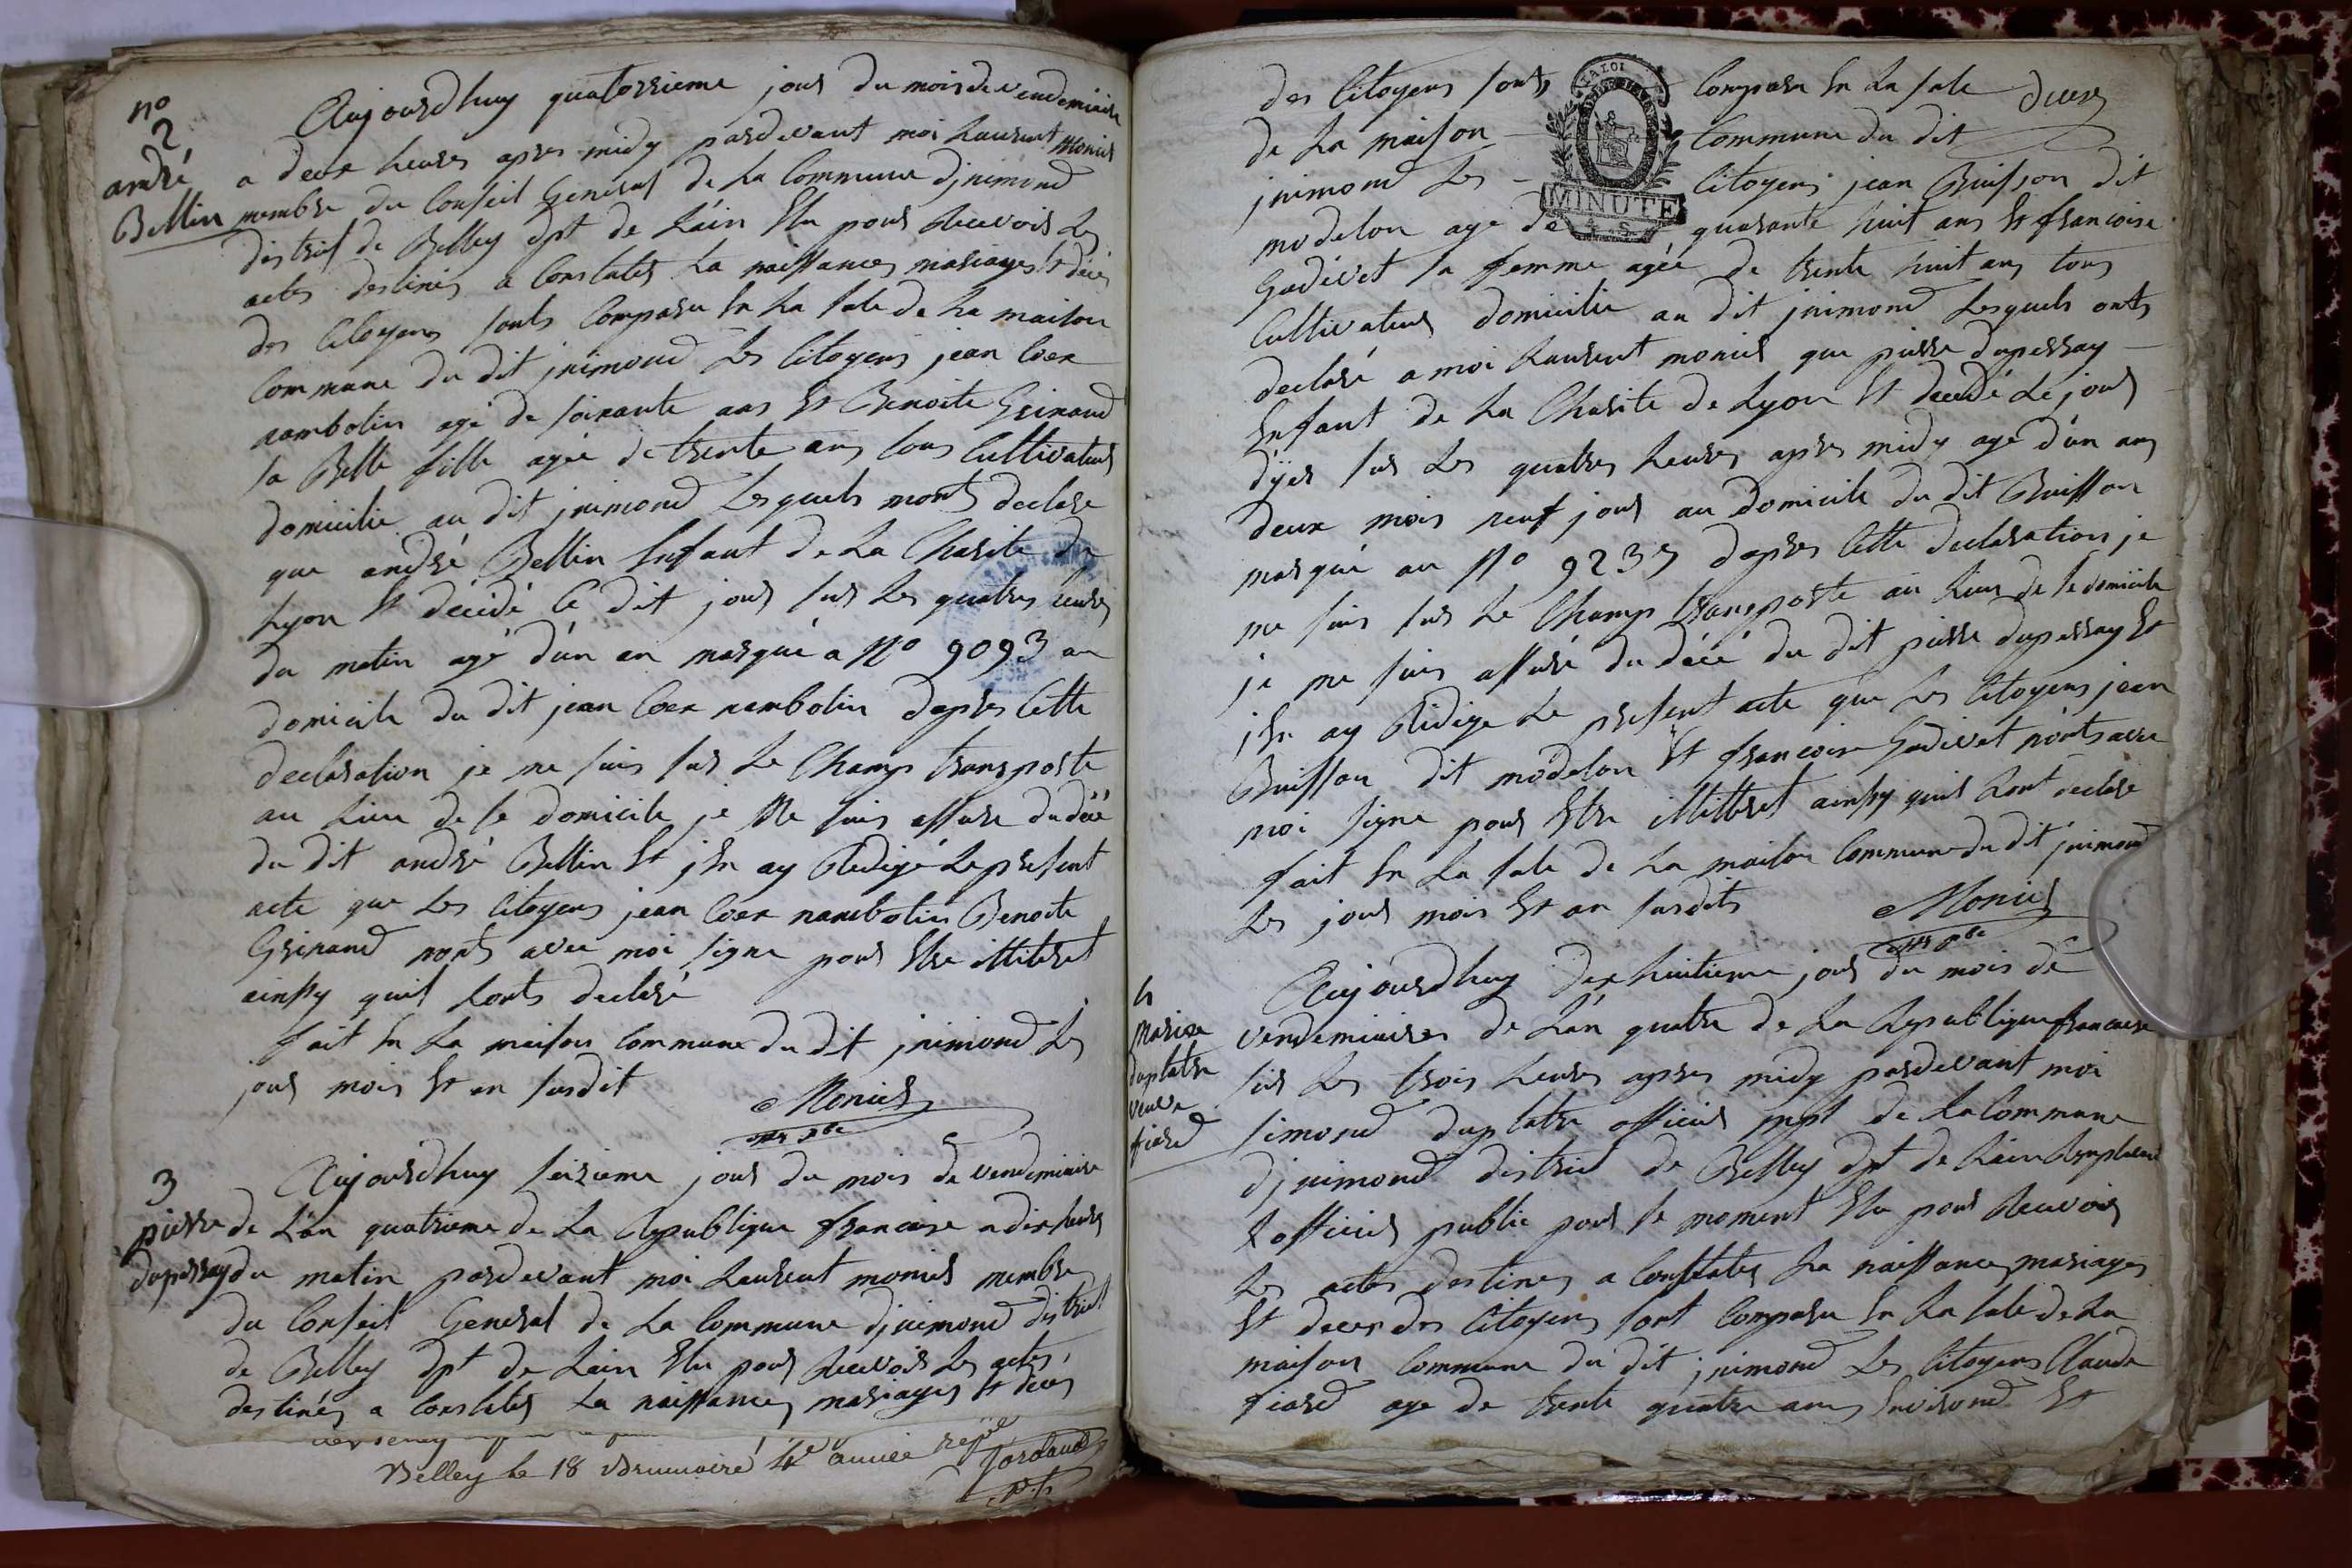 no
2
andré
Bellin
Aujourdhuy quatorzieme jour du mois de vendemiaire
a deux heures apres midy pardevant moi Laurent Monier
membre du Conseil General de La Commune djnimond
district de Belley dpt de Lain Elu pour Recevoir Les
actes destinés a Constater La naissances mariages Et décés
des Citoyens sonts Comparu En La sale de La maison
Commune du dit jnimond Les Citoyens jean Coex
nambotin agé de soixante ans Et Benoite Grinand
sa Belle fille agée de trente ans tous Cultivateurs
domicilie au dit jnimond Lesquels monts declare
que andré Bellin Enfant de La Charite de
Lyon Et décédé Ce dit jour sur Les quatres heures
du matin agé d'un an marqué a No 9093 au
domicile du dit jean Coex nambotin dapres Cette
declaration je me suis sur Le Champ transporte
au Lieu de se domicile je Me suis assure du décé
du dit andré Bellin Et jEn ay Rédigé Le present
acte que Les Citoyens jean Coex nambotin Benoite
Grinand nonts avec moi signe pour Etre illiteret
ainsy quil Lonts declaré
fait En La maison Commune du dit jnimond Les
jour mois Et an susdit
Monier
3
pierre
dupessay
Aujourdhuy seizieme jour du mois de vendemiaire
de L'an quatrieme de La Republique francaise a dix heures
du matin pardevant moi Laurent monier membre
du Conseil General de La Commune djnimond district
de Belley dpt de Lain Elu pour Recevoir Les actes
destinés a Constater La naissances mariages Et décés
Belley le 18 Brumaire 4e année repue
des Citoyens sonts Comparu En La sale
de La maison Commune du dit
jnimond Les Citoyens jean Buisson dit
modelon age de quarante huit ans Et francoise
Godivet sa femme agée de trente huit ans tous
Cultivateurs domicilie au dit jnimond Lesquels onts
declaré a moi Laurent monier que pierre dupessay
Enfant de La Charite de Lyon Et decedé Le jour
d'yer sur Les quatres heures apres midy agé d'un ans
deux mois neuf jour au domicile du dit Buisson
marqué au No 9235 dapres Cette declaration je
me suis sur Le Champ transporte au Lieu de se domicile
je me suis assuré du décé du dit pierre dupessay Et
jEn ay Rédige Le present acte que Les Citoyens jean
Buisson dit modelon Et francoise Godivet nonts avec
moi signe pour Etre illitteret ainsy quil Lont declare
fait En La sale de La maison Commune du dit jnimond
Les jour mois Et an susdits
Monier
LA LOI
MINUTE
4 S
4
Marie
duplatre
veuve
fiard
Aujourdhuy dixhuitieme jour du mois de
vendemiaires de L'an quatre de La Republique francaise
sur Les trois heures apres midy pardevant moi
simond duplatre officier mpl de La Commune
djnimond district de Belley dpt de Lain Remplacant
L officier public pour le moment Elu pour Recevoir
Les actes destines a Constater La naissances mariages
Et deces des Citoyens sont Comparu En La sale de La
maison Commune du dit jnimond Les Citoyens Claude
fiard age de trente quatre ans Environd Et